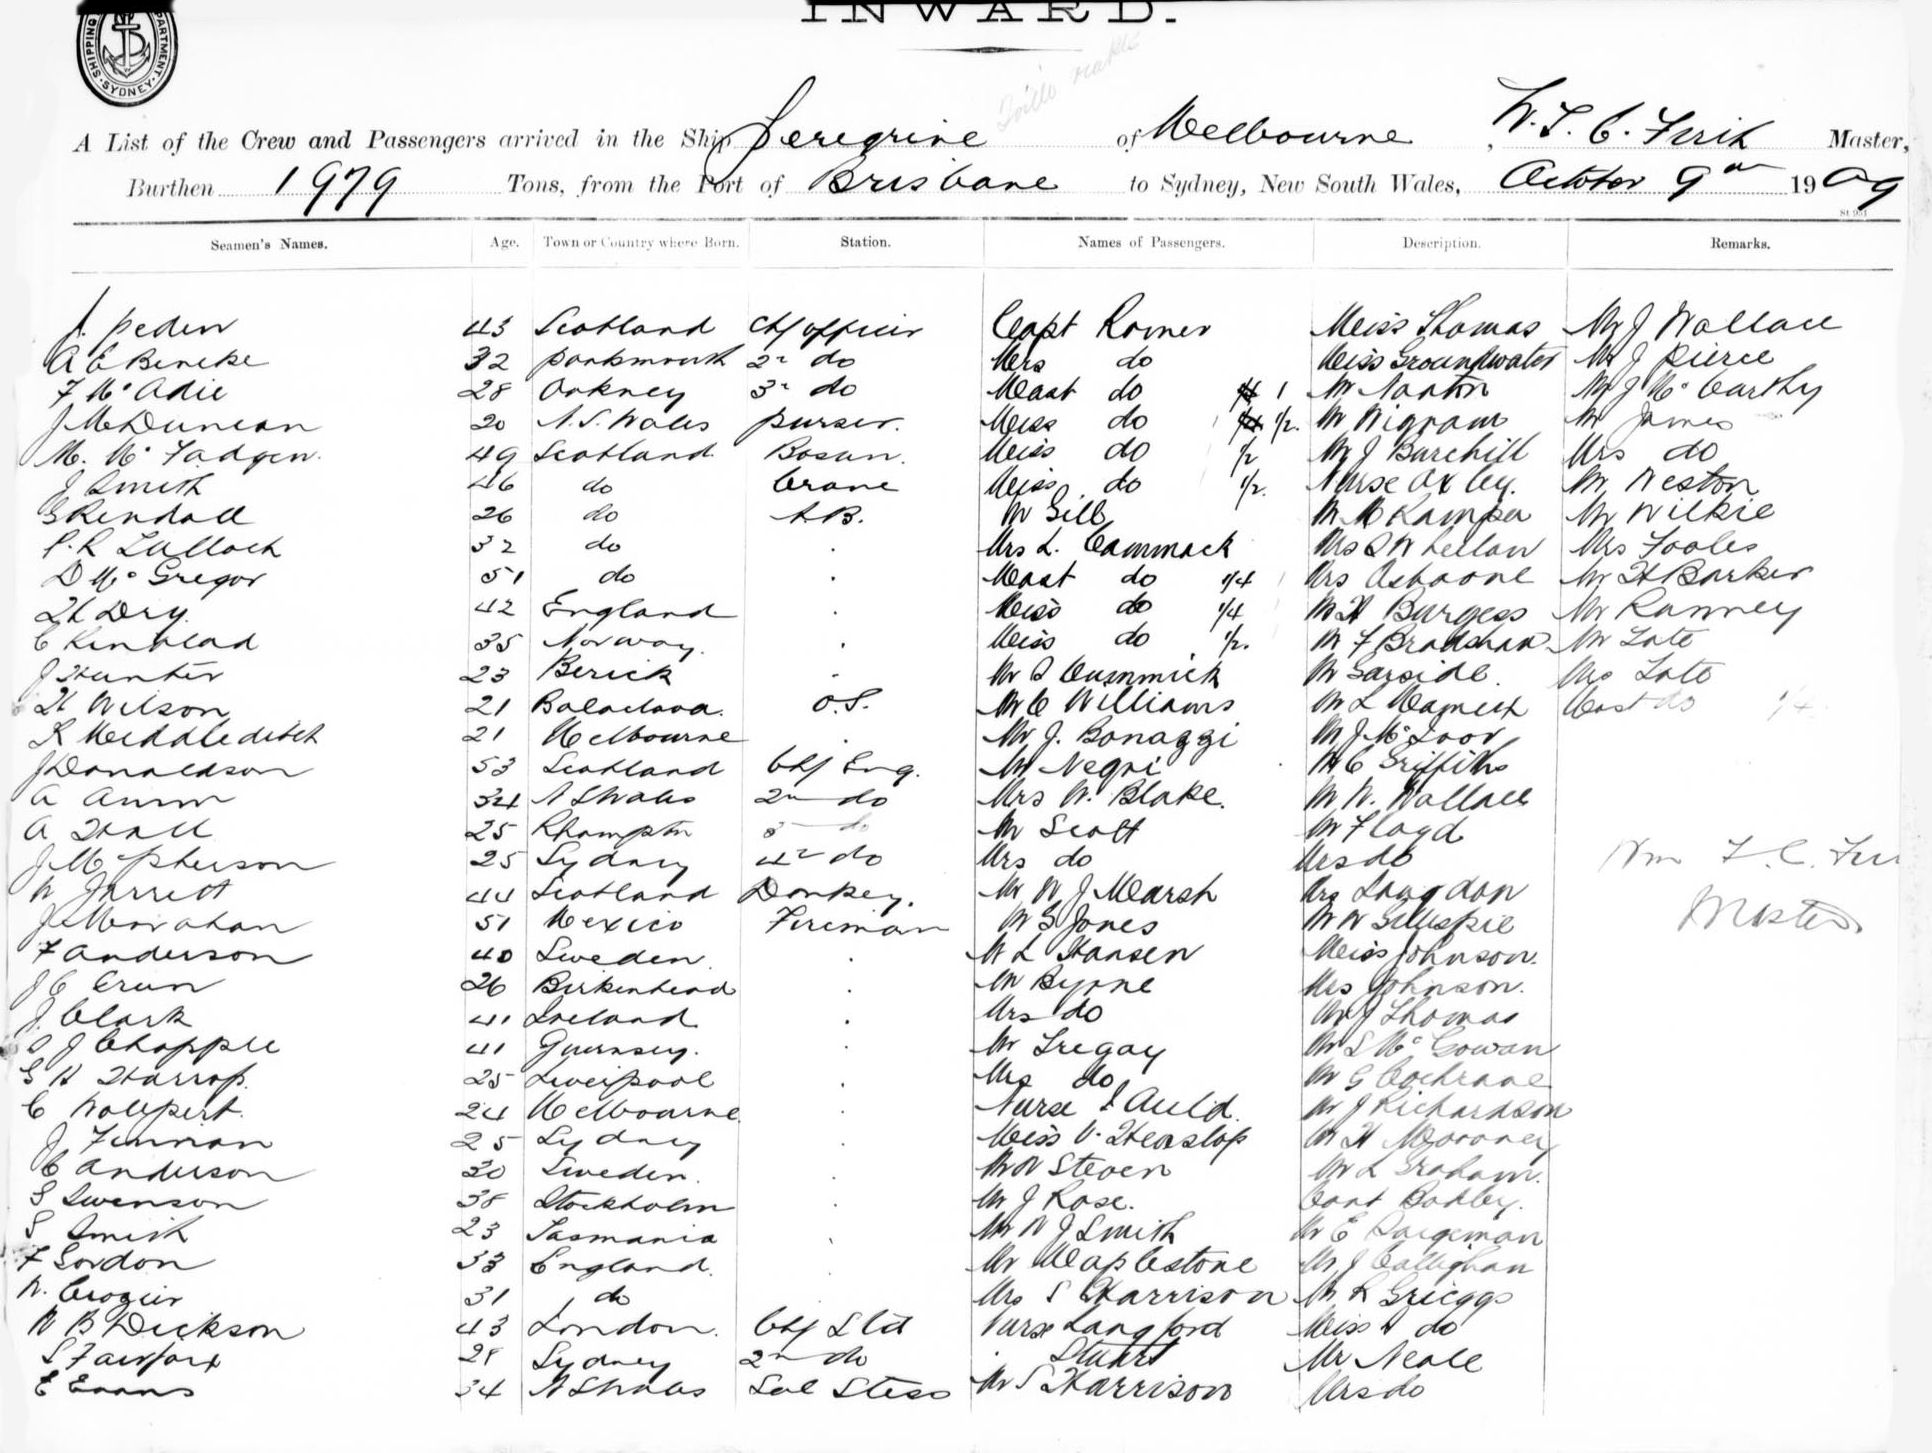 INWARD.
SHIPPING DEPARTMENT SYDNEY
A List of the Crew and Passengers arrived in the Ship Peregrine of Melbourne, W. T. C. Firth Master,
Burthen 1979 Tons, from the Port of Brisbane to Sydney, New South Wales, October 9th 1909
Seamen's Names. Age. Town or Country where Born. Station. Names of Passengers. Description. Remarks.
J. Peden 43 Scotland Chf officer Capt Romer Miss Thomas Mr J Wallace
A E Beneke 32 Portsmouth 2n do Mrs do Miss Groundwater Mr J Pierce
F McAdie 28 Orkney 3r do Mast do 1 Mr Norton Mr J McCarthy
J McDuncan 20 N.S. Wales purser. Miss do 1/2. Mr Wigram Mr James
M. McFadgen. 49 Scotland Bosun. Miss do 1/2 Mr J Burchill Mrs do
J Smith 46 do Crane Miss do 1/2. Nurse Oxley. Mr Weston
G Rendall 26 do A.B. Mr Gill Mr Wilkie
P. R Tulloch 32 do Mrs L. Cammack Mrs Whellan Mrs Fooles
D McGregor 51 do Mast do 1/4 Mrs Osborne Mr H Barker
H Dry. 42 England Miss do 1/4 Mr H Burgess Mr Ranney
C 35 Norway. Miss do 1/2. Mr F Bradshaw Mr Tate
J Hunter 23 Berick Mr Cummick Mr Garside. Mrs Tate
H Wilson 21 Balaclava. O.S. Mr C Williams Mr L Mast do 1/4
R Meddleditch 21 Melbourne Mr J. Bonazzi Mr J
J Donaldson 53 Scotland Chf Eng. Mr Negri Mr C Griffiths
A 34 N S Wales 2n do Mrs W. Blake. Mr W. Wallace
A Hall 25 Rhampton 3 do Mr Scott Mr Floyd
J McPherson 25 Sydney 4r do Mrs do Mrs do
W Jarrett 44 Scotland Donkey. Mr W J Marsh Mrs Langdon
J Monahan 51 Mexico Fireman Mr G Jones Mr W Gillespie Master
F Anderson 40 Sweden. Mr L Hansen Miss Johnson.
J C 26 Birkenhead Mr Byrne Mrs Johnson.
J. Clark 41 Ireland Mrs do Mr J Thomas
J Chapple 41 Guernsey. Mr Tregay Mr S McGowan
G H Harrop. 25 Liverpool Mrs do Mr G Cochrane
C Wolpert. 24 Melbourne Nurse Auld. Mr J Richardson
J Finnian 25 Sydney Miss V. Heaslop Mr H Mooroney
C Anderson 20 Sweden. Mr W Steven Mr L Graham.
S Swenson 38 Stockholm Mr J Rose. Capt
S Smith 23 Tasmania Mr W J Smith Mr E
F Gordon 33 England. Mr Maplestone Mr J Callighan
W. Crozier 31 do Mrs S Harrison Mr R Griggs
W B Dickson 43 London. Chf Std Nurse Langford Miss do
S Fairfax 28 Sydney 2n do Stuart Mr Neale
E Evans 34 N S Wales Mr S Harrison Mrs do